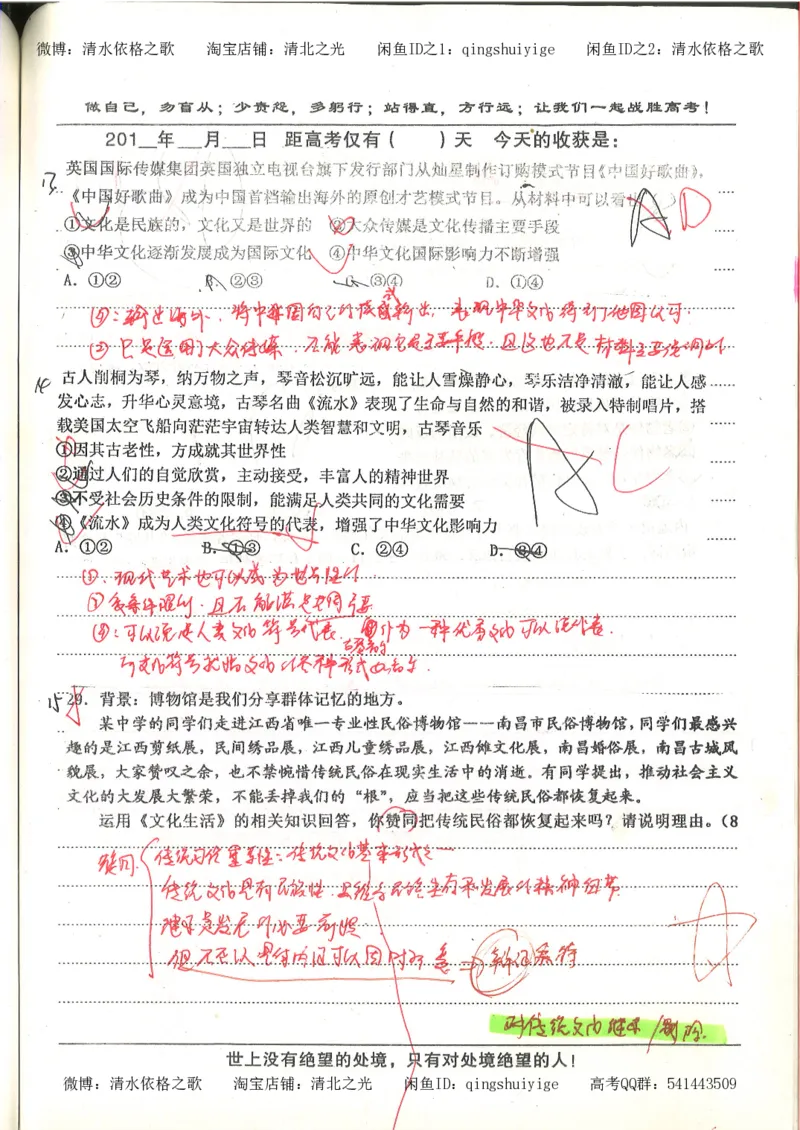 微博：清水依格之歌 淘宝店铺：清北之光 闲鱼ID之1：qingshuiyige 闲鱼ID之2：清水依格之歌
做自己，勿盲从；少责怨，多躬行；站得直，方行远；让我们一起战胜高考！
201__年___月___日 距高考仅有（ ）天 今天的收获是：
13 英国国际传媒集团英国独立电视台旗下发行部门从灿星制作订购模式节目《中国好歌曲》，
《中国好歌曲》成为中国首档输出海外的原创才艺模式节目。从材料中可以看出 A D
①文化是民族的，文化又是世界的 ②大众传媒是文化传播主要手段
③中华文化逐渐发展成为国际文化 ④中华文化国际影响力不断增强
A．①② B．②③ C．③④ D．①④
④：输出海外，将中华国自己的原创输出，表现中华文化得到了他国认可．
② 只是运用了大众传媒，不能表现它是主要手段，且这也不是材料主要强调的
14 古人削桐为琴，纳万物之声，琴音松沉旷远，能让人雪燥静心，琴乐洁净清澈，能让人感
发心志，升华心灵意境，古琴名曲《流水》表现了生命与自然的和谐，被录入特制唱片，搭
载美国太空飞船向茫茫宇宙转达人类智慧和文明，古琴音乐 A C
①因其古老性，方成就其世界性
②通过人们的自觉欣赏，主动接受，丰富人的精神世界
③不受社会历史条件的限制，能满足人类共同的文化需要
④《流水》成为人类文化符号的代表，增强了中华文化影响力
A．①② B．①③ C．②④ D．③④
①．现代艺术也可以成为世界性的
③ 受条件限制．且不能满足共同需要
④：可以说是人类文化符号代表．作为一种优秀文化可以说代表．
古琴音乐
15 29．背景：博物馆是我们分享群体记忆的地方。
某中学的同学们走进江西省唯一专业性民俗博物馆——南昌市民俗博物馆，同学们最感兴
趣的是江西剪纸展，民间绣品展，江西儿童绣品展，江西傩文化展，南昌婚俗展，南昌古城风
貌展，大家赞叹之余，也不禁惋惜传统民俗在现实生活中的消逝。有同学提出，推动社会主义
文化的大发展大繁荣，不能丢掉我们的“根”，应当把这些传统民俗都恢复起来。
运用《文化生活》的相关知识回答，你赞同把传统民俗都恢复起来吗？请说明理由。（8
赞同． 传统习俗重要性：传统文化基本形式之一
传统文化具有民族性，是维系民族生存和发展的精神纽带
继承是发展的必要前提．
但不足以具体内涵可以因时而变 ⇒ 辩证看待
对传统文化继承/剔除．
世上没有绝望的处境，只有对处境绝望的人！
微博：清水依格之歌 淘宝店铺：清北之光 闲鱼ID：qingshuiyige 高考QQ群：541443509